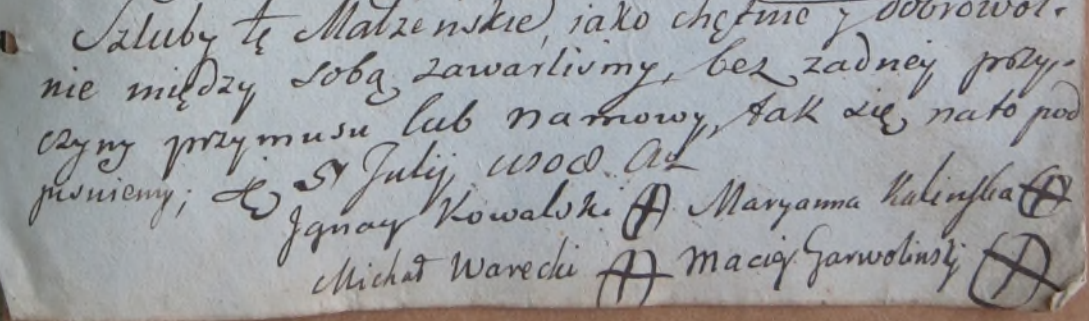 Szluby tę Małzenskie, iako chętnie y dobrowol-
nie między sobą zawarlismy, bez zadney przy-
czyny przymusu lub namowy, tak się nato pod
pisuiemy; Julij
Jgnacy Kowalski Maryanna Kalinska
Michał Warecki Maciey Garwolinsky